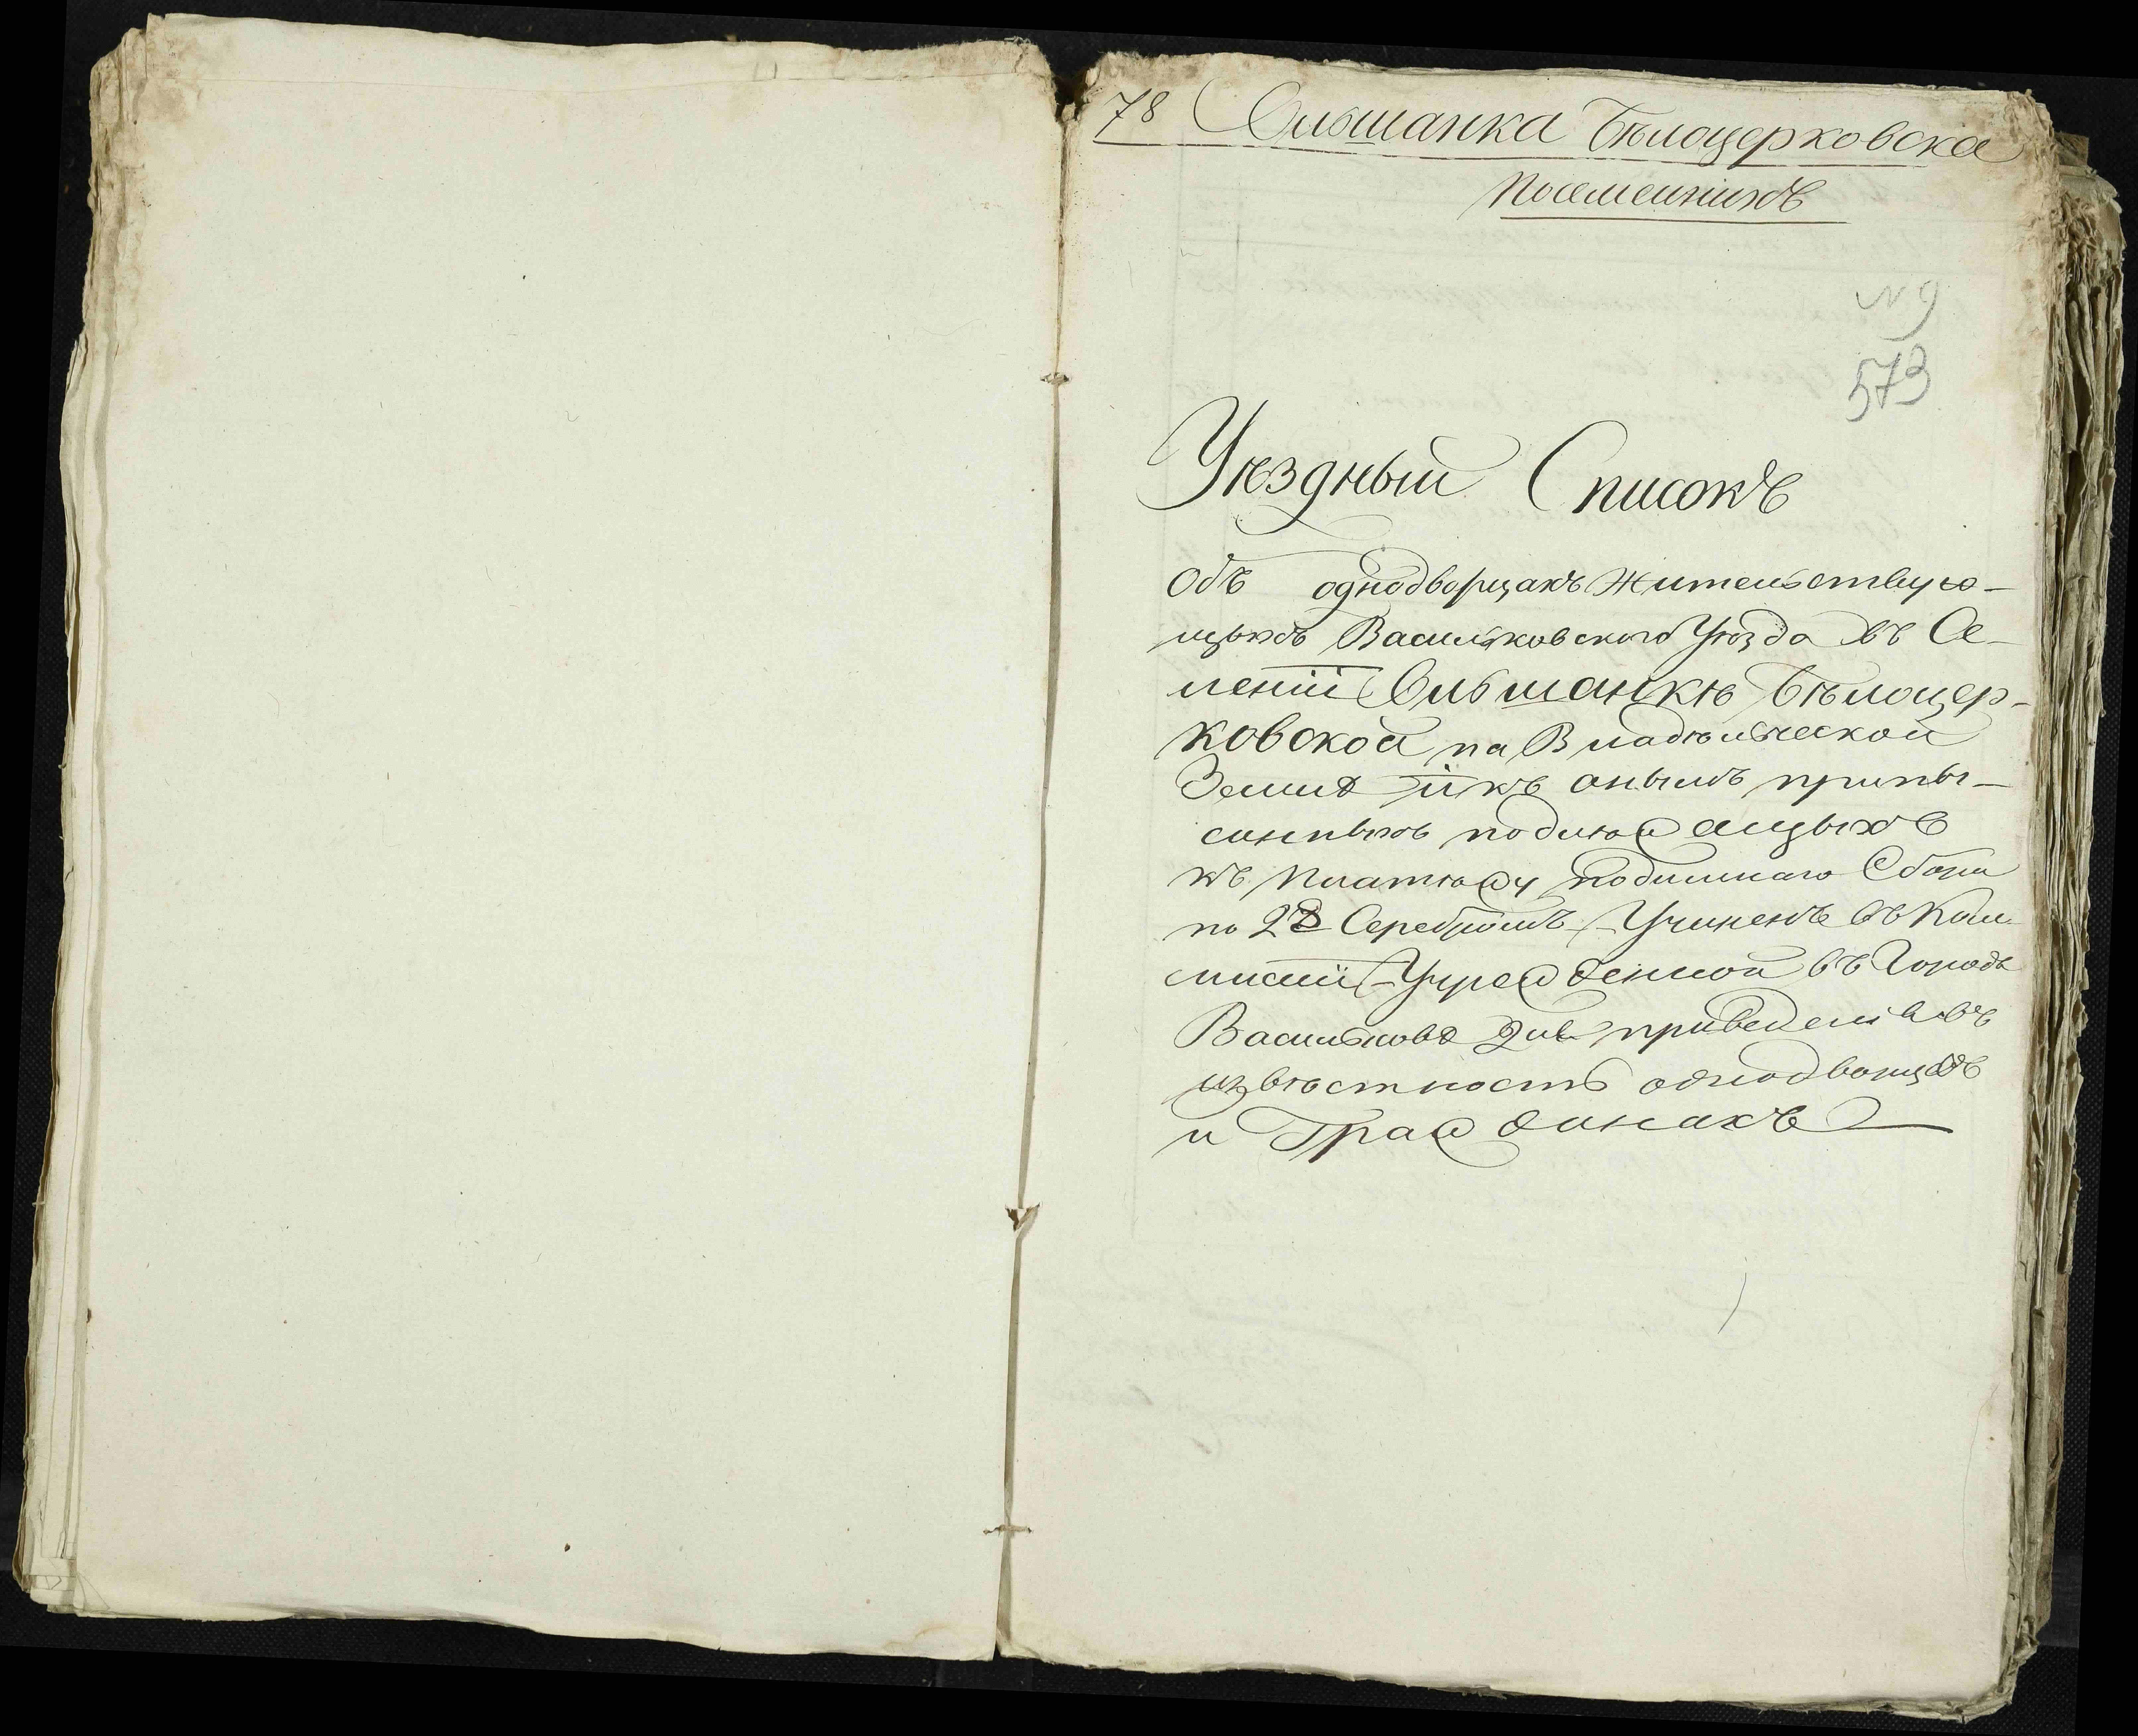 78 Ольшанка Бѣлоцерковска
N 9
573
Уѣздный Списокъ
объ однодворцахъ жительствую-
щихъ Васильковского Уѣзда въ Се-
леніи Ольшанкѣ Бѣлоцер-
ковской на Владѣльческой
Землѣ и къ онымъ припы-
санныхъ подлежащыхъ
къ платежу подымнаго Сбора
по 2 Серебромъ Учиненъ въ Ком-
мисіи Учрежденной въ Городѣ
Васильковѣ для приведенія въ
извѣстность однодворцовъ
и Гражданахъ